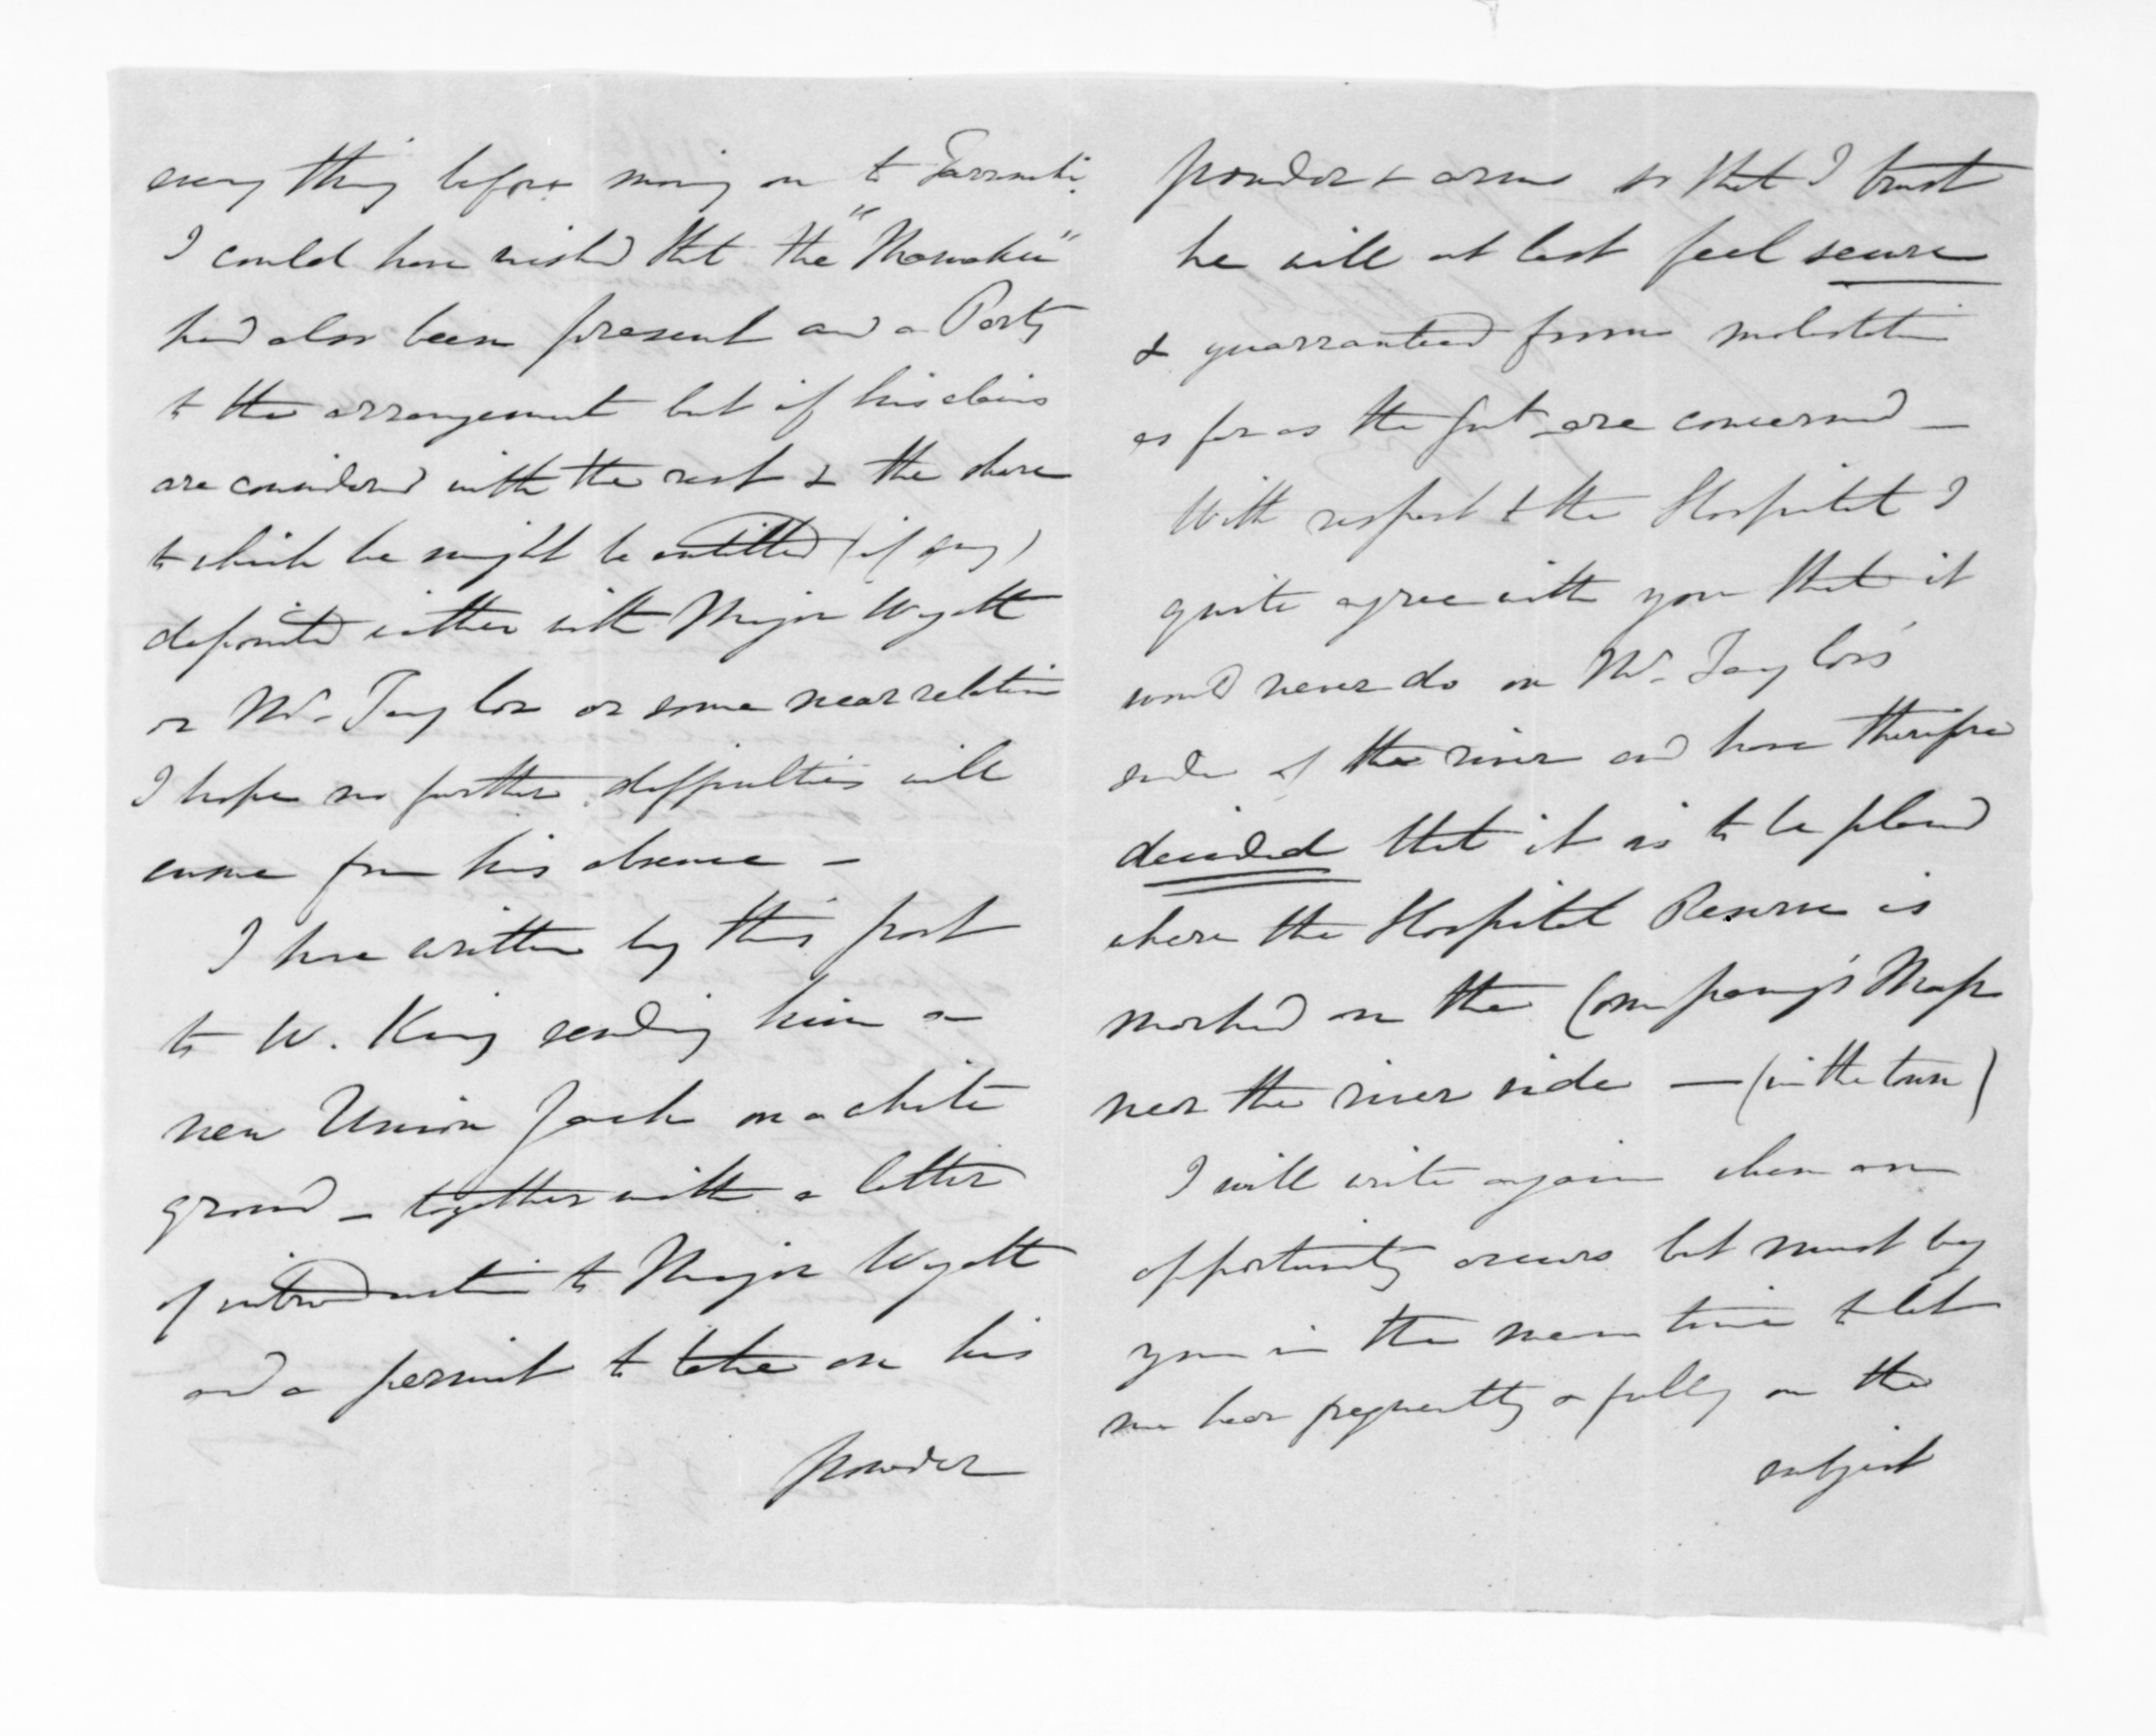 every thing before moving on to Taranaki.
I could have wished that the "Mamaku"
had also been present and a Party
to the arrangement but if his claims
are considered with the rest & the share
to which he might be entitled (if any)
deposited either with Major Wyatt
or Mr. Taylor or some near relation
I hope no further difficulties will
ensue from his absence —
I have written by this post
to W. King sending him a
new Union Jack on a white
ground — together with a letter
of introduction to Major Wyatt
and a permit to take on his
powder
powder & arms so that I trust
he will at last feel secure
& guarranteed from molestation
as far as the Govt are concerned —
With respect to the Hospital I
quite agree with you that it
would never do on Mr. Taylor's
side of the river and have therefore
decided that it is to be placed
where the Hospital Reserve is
marked on the Company's Map
near the river side — (in the town)
I will write again when an
opportunity occurs but must beg
you in the mean time to let
me hear frequently & fully on the
subject